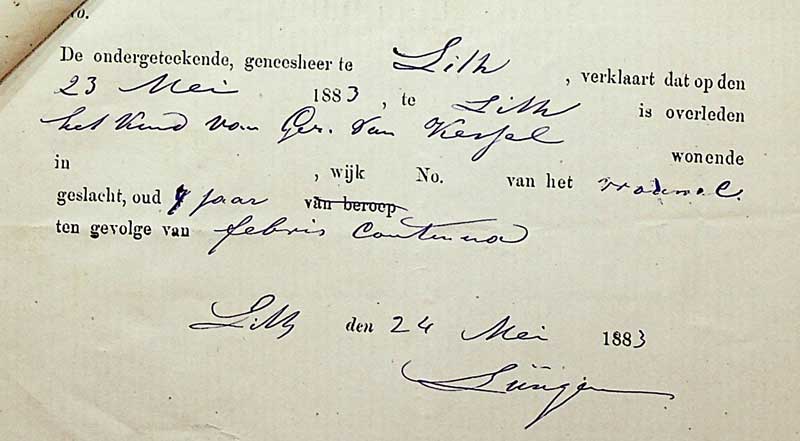 No.
De ondergeteekende, geneesheer te Lith , verklaart dat op den
23 Mei 1883 , te Lith is overleden
het Kind van Ger. van Kessel wonende
in , wijk No. van het
geslacht, oud jaar van beroep
ten gevolge van febris continua
Lith den 24 Mei 1883